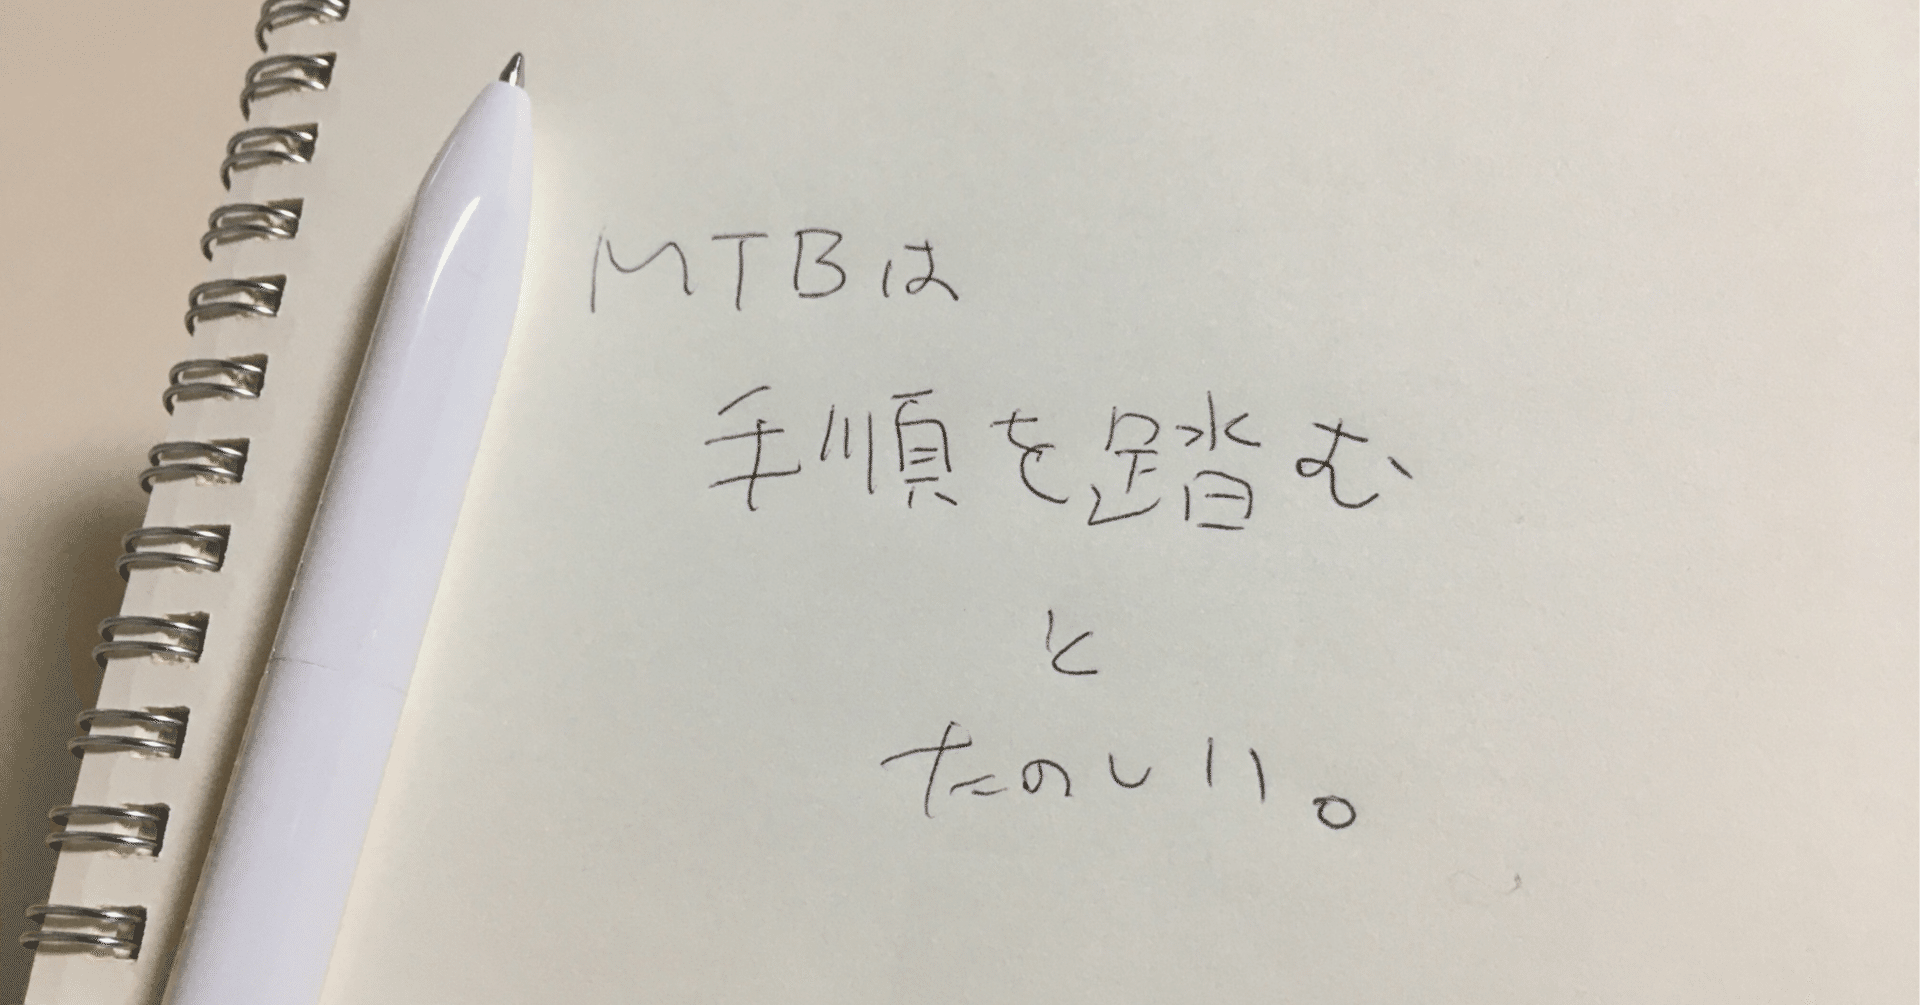 MTBは
手順を踏む
と
たのしい。